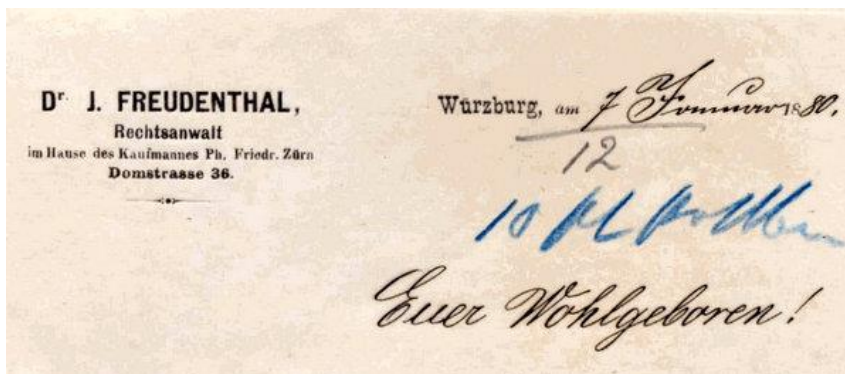 Dr. J. FREUDENTHAL,
Rechtsanwalt
im Hause des Kaufmannes Ph. Friedr. Zürn
Domstrasse 36.
Würzburg, am 7 Januar 1880.
12
10
Euer Wohlgeboren!